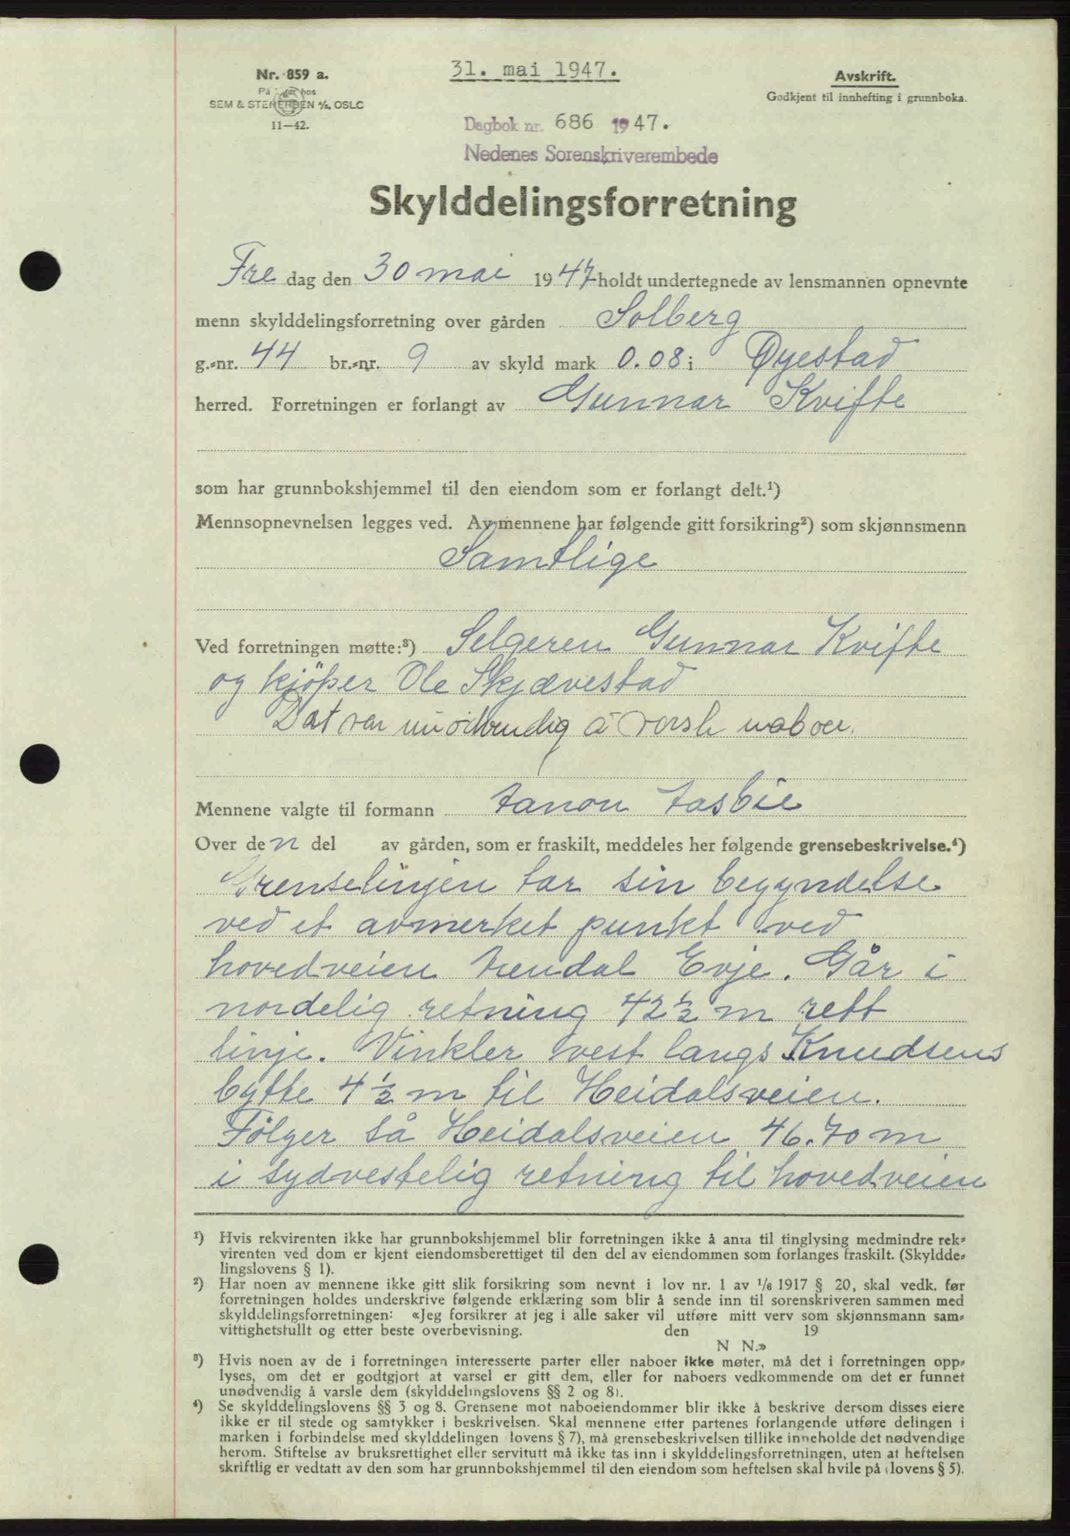 Nr. 859 a.
31. mai 1947.
Avskrift.
På hos
Godkjent til innhefting i grunnboka.
SEM & STENERSEN A/S, OSLO
11—42.
Dagbok nr. 686 1947.
Nedenes Sorenskriverembede
Skylddelingsforretning
Fre dag den 30 mai 1947 holdt undertegnede av lensmannen opnevnte
menn skylddelingsforretning over gården Solberg
g.-nr. 44 br.-nr. 9 av skyld mark 0.08 i Øyestad
herred. Forretningen er forlangt av Gunnar Kvifte
som har grunnbokshjemmel til den eiendom som er forlangt delt.¹)
Mennsopnevnelsen legges ved. Av mennene har følgende gitt forsikring²) som skjønnsmenn
Samtlige
Ved forretningen møtte:³) Selgeren Gunnar Kvifte
og kjöper Ole Skjævestad
Det var unödvendig å varsle naboer.
Mennene valgte til formann
Over den del av gården, som er fraskilt, meddeles her følgende grensebeskrivelse.⁴)
Grenselinjen tar sin begyndelse
ved et avmerket punkt ved
hovedveien Arendal Evje. Går i
nordelig retning 42½ m rett
linje. Vinkler vest langs Knudsens
bytte 4½ m til Heidalsveien.
Fölger så Heidalsveien 46.70 m
i sydvestelig retning til hovedveien
¹) Hvis rekvirenten ikke har grunnbokshjemmel blir forretningen ikke å anta til tinglysing medmindre rek-
virenten ved dom er kjent eiendomsberettiget til den del av eiendommen som forlanges fraskilt. (Skyldde-
lingslovens § 1).
²) Har noen av mennene ikke gitt slik forsikring som nevnt i lov nr. 1 av 1/6 1917 § 20, skal vedk. før
forretningen holdes underskrive følgende erklæring som blir å sende inn til sorenskriveren sammen med
skylddelingsforretningen: «Jeg forsikrer at jeg i alle saker vil utføre mitt verv som skjønnsmann sam-
vittighetsfullt og etter beste overbevisning. den 19
N N.»
³) Hvis noen av de i forretningen interesserte parter eller naboer ikke møter, må det i forretningen opp-
lyses, om det er godtgjort at varsel er gitt dem, eller for naboers vedkommende om det er funnet
unødvendig å varsle dem (skylddelingslovens §§ 2 og 8).
⁴) Se skylddelingslovens §§ 3 og 8. Grensene mot naboeiendommer blir ikke å beskrive dersom disses eiere
ikke er til stede og samtykker i beskrivelsen. Skal mennene etter partenes forlangende utføre delingen i
marken i forbindelse med skylddelingen lovens § 7), må grensebeskrivelsen tillike inneholde det nødvendige
herom. Stiftelse av bruksrettighet eller servitutt må ikke tas inn i skylddelingsforretningen, uten at heftelsen
skriftlig er vedtatt av den som har grunnbokshjemmel til den eiendom som heftelsen skal hvile på (lovens § 5).